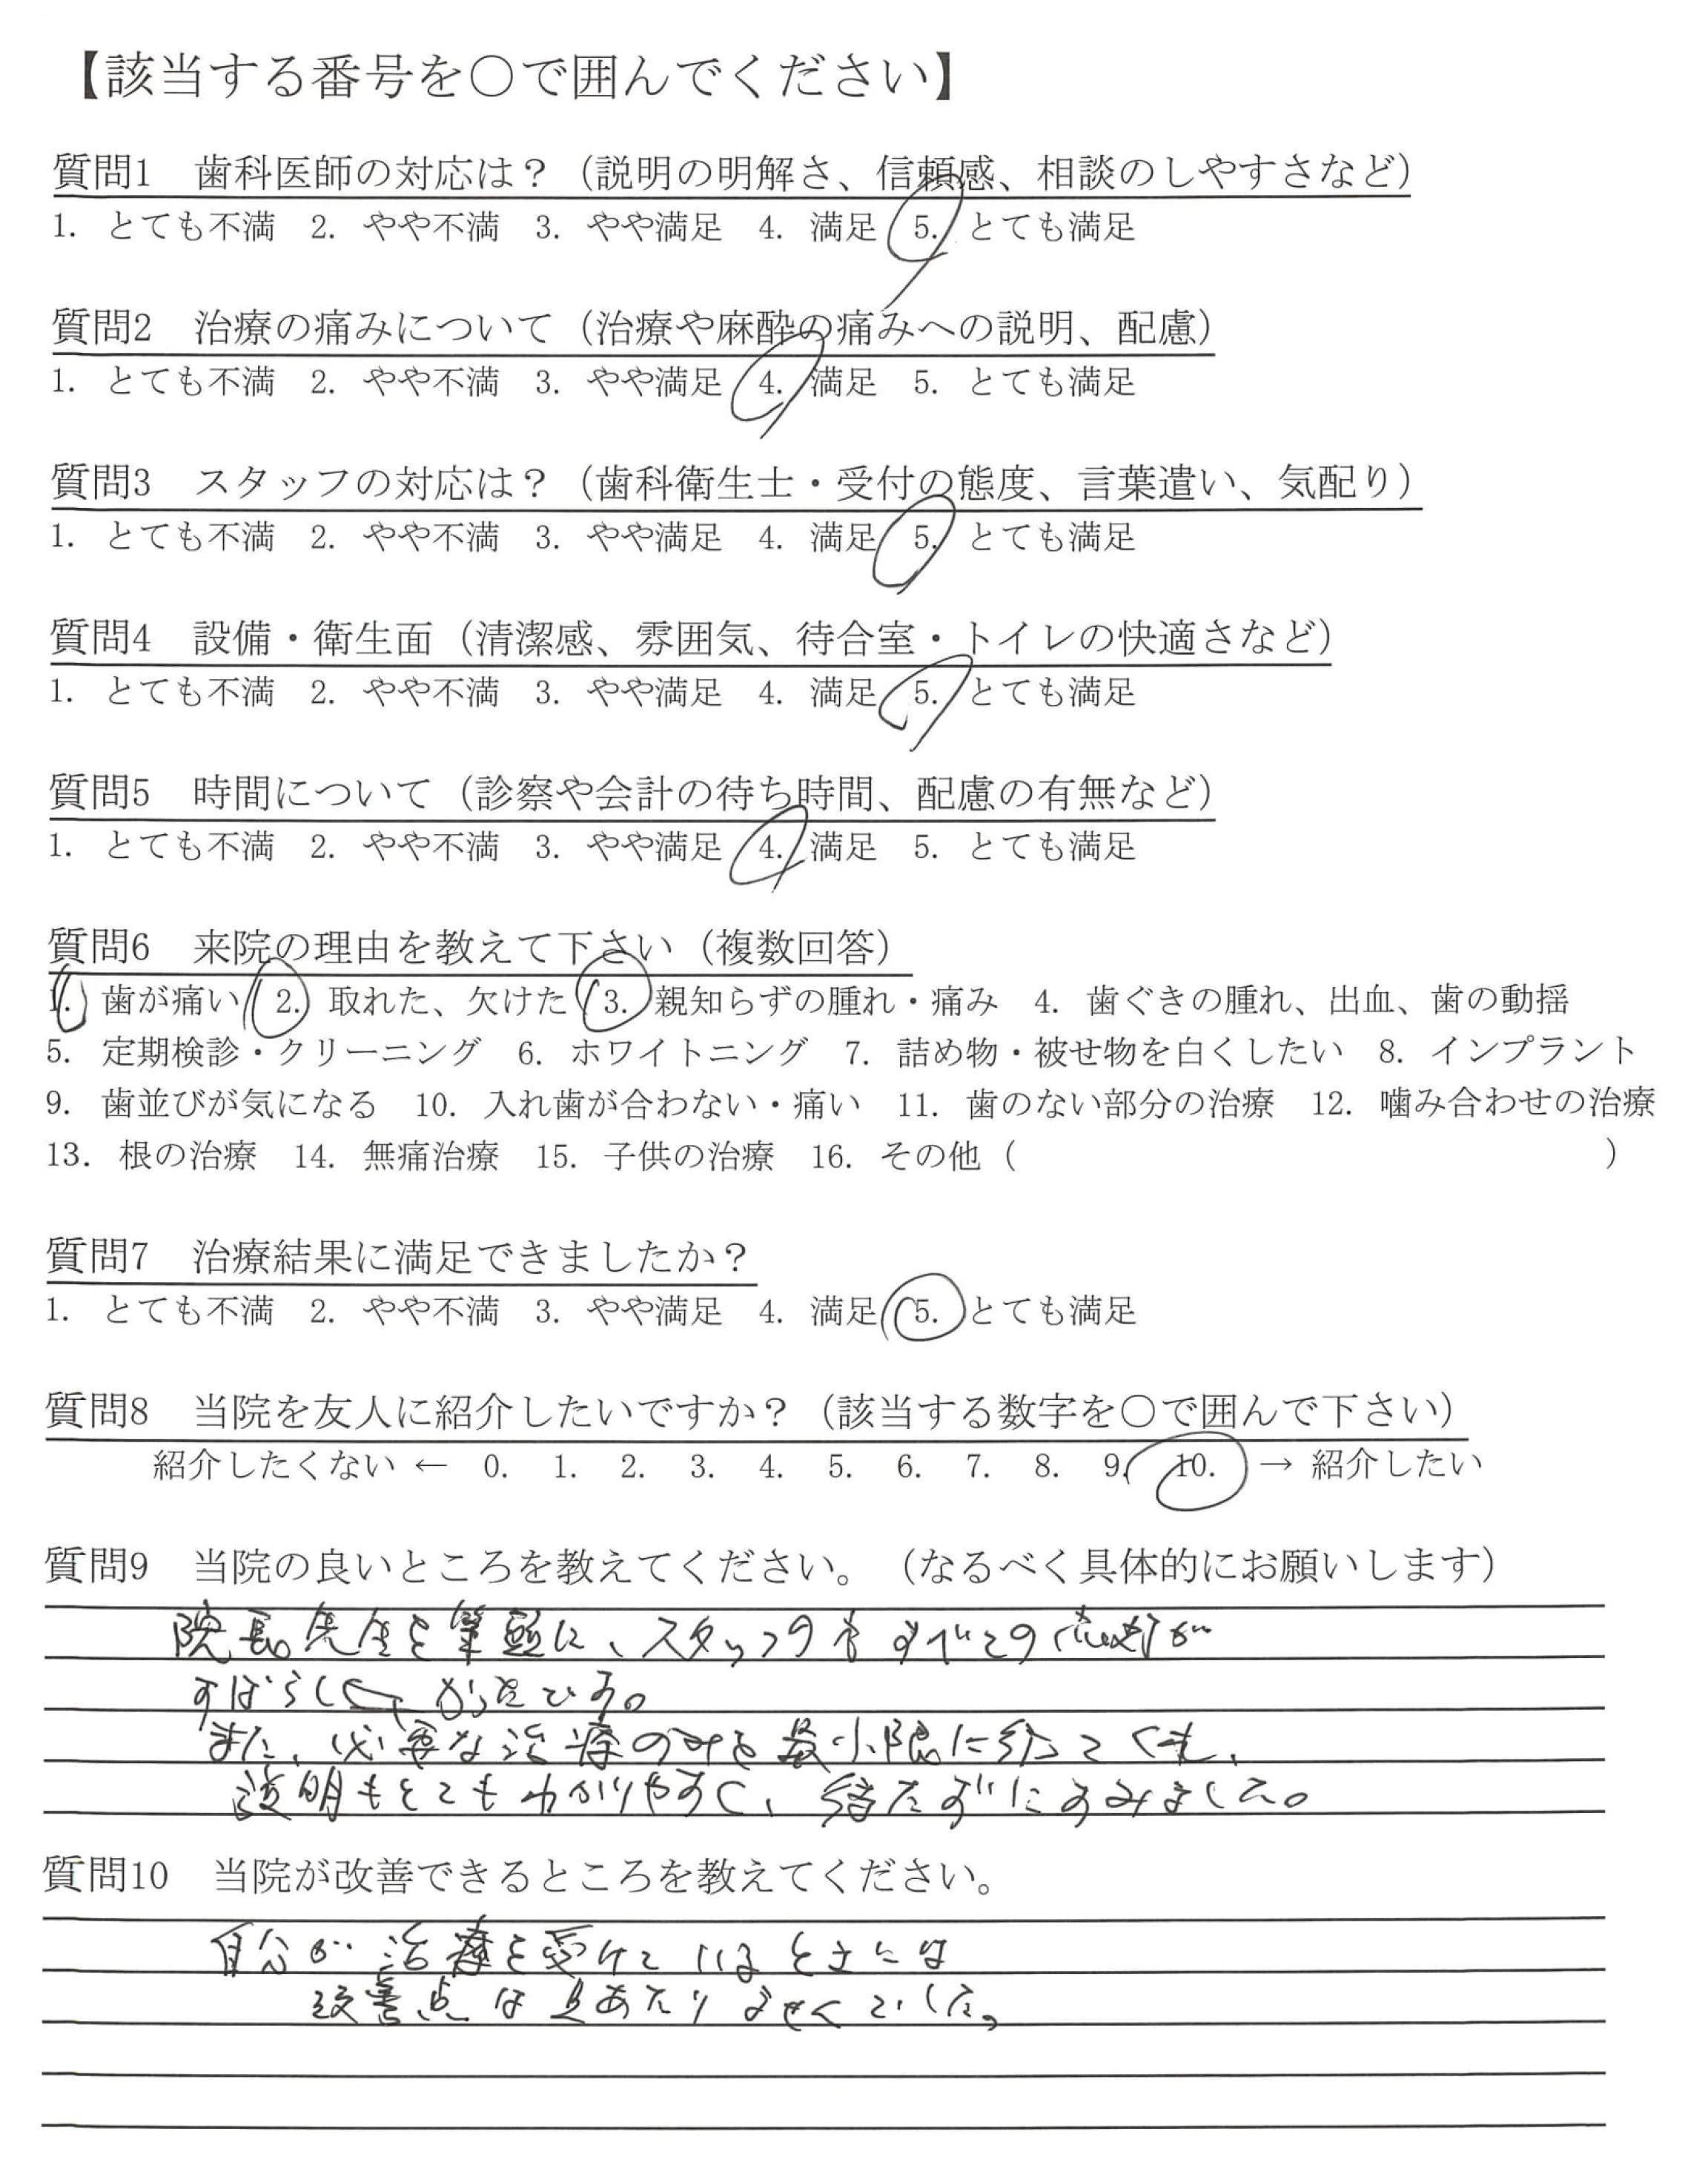 【該当する番号を○で囲んでください】
質問1　歯科医師の対応は？（説明の明解さ、信頼感、相談のしやすさなど）
1. とても不満　2. やや不満　3. やや満足　4. 満足　5. とても満足
質問2　治療の痛みについて（治療や麻酔の痛みへの説明、配慮）
1. とても不満　2. やや不満　3. やや満足　4. 満足　5. とても満足
質問3　スタッフの対応は？（歯科衛生士・受付の態度、言葉遣い、気配り）
1. とても不満　2. やや不満　3. やや満足　4. 満足　5. とても満足
質問4　設備・衛生面（清潔感、雰囲気、待合室・トイレの快適さなど）
1. とても不満　2. やや不満　3. やや満足　4. 満足　5. とても満足
質問5　時間について（診察や会計の待ち時間、配慮の有無など）
1. とても不満　2. やや不満　3. やや満足　4. 満足　5. とても満足
質問6　来院の理由を教えて下さい（複数回答）
1. 歯が痛い　2. 取れた、欠けた　3. 親知らずの腫れ・痛み　4. 歯ぐきの腫れ、出血、歯の動揺
5. 定期検診・クリーニング　6. ホワイトニング　7. 詰め物・被せ物を白くしたい　8. インプラント
9. 歯並びが気になる　10. 入れ歯が合わない・痛い　11. 歯のない部分の治療　12. 噛み合わせの治療
13. 根の治療　14. 無痛治療　15. 子供の治療　16. その他（　　　　　　　　　　）
質問7　治療結果に満足できましたか？
1. とても不満　2. やや不満　3. やや満足　4. 満足　5. とても満足
質問8　当院を友人に紹介したいですか？（該当する数字を○で囲んで下さい）
紹介したくない ← 0. 1. 2. 3. 4. 5. 6. 7. 8. 9. 10. → 紹介したい
質問9　当院の良いところを教えてください。（なるべく具体的にお願いします）
院長先生を筆頭に、スタッフの すべての 応対が
すばらしく
また、必要な治療のみを最小限に行って
説明もとてもわかりやすく、 ずにすみました。
質問10　当院が改善できるところを教えてください。
自分が治療を受けているときには
改善点は見あたりませんでした。